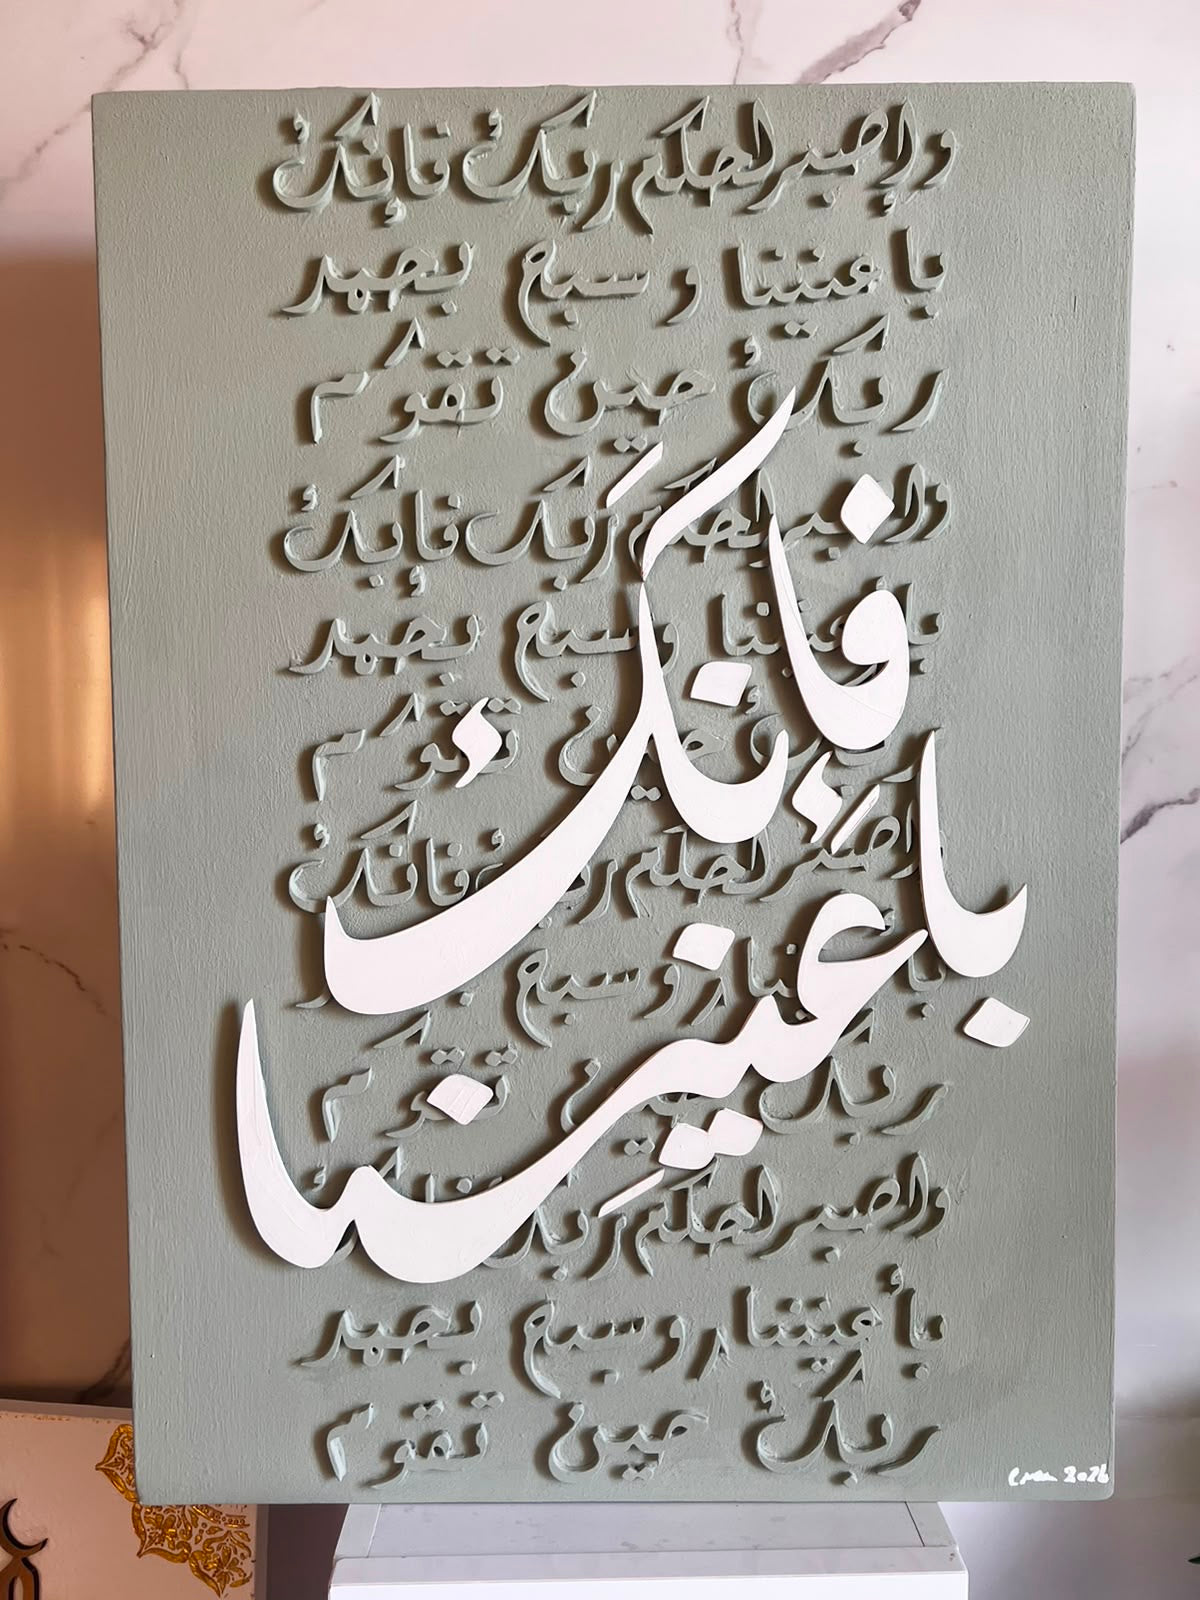 وإصبر لحكم ربك فإنك
بأعيننا و سبح بحمد
ربك حين تقوم
واصبر لحكم ربك فإنك
بأعيننا وسبح بحمد
ربك حين تقوم
واصبر لحكم ربك فانك
وسبح
ربك حين تقوم
واصبر لحكم ربك
بأعيننا وسبح بحمد
ربك حين تقوم
فإنك
بأعيننا
2026